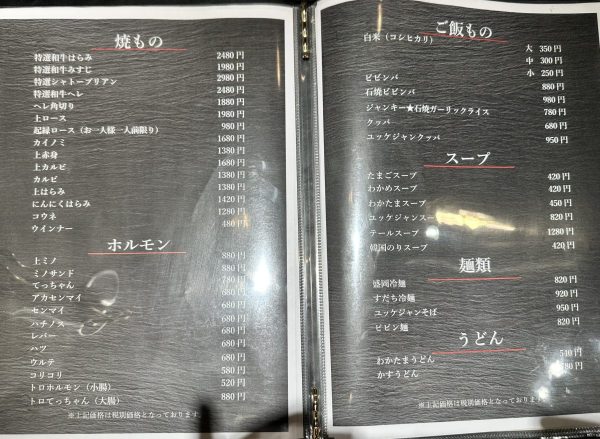 焼もの
特選和牛はらみ 2480円
特選和牛みすじ 1980円
特選シャトーブリアン 2980円
特選和牛ヘレ 2480円
ヘレ角切り 1880円
上ロース 1980円
起縁ロース（お一人様一人前限り） 980円
カイノミ 1680円
上赤身 1380円
上カルビ 1680円
カルビ 1380円
上はらみ 1380円
にんにくはらみ 1420円
コウネ 1280円
ウインナー 480円
ホルモン
上ミノ 880円
ミノサンド 880円
てっちゃん 780円
アカセンマイ 680円
センマイ 680円
ハチノス 680円
レバー 680円
ハツ 680円
ウルテ 680円
コリコリ 580円
トロホルモン（小腸） 520円
トロてっちゃん（大腸） 880円
※上記価格は税別価格となっております。
ご飯もの
白米（コシヒカリ） 大 350円
中 300円
小 250円
ビビンバ 880円
石焼ビビンバ 980円
ジャンキー★石焼ガーリックライス 780円
クッパ 680円
ユッケジャンクッパ 950円
スープ
たまごスープ 420円
わかめスープ 420円
わかたまスープ 450円
ユッケジャンスープ 820円
テールスープ 1280円
韓国のりスープ 420円
麺類
盛岡冷麺 820円
すだち冷麺 920円
ユッケジャンそば 950円
ビビン麺 820円
うどん
わかたまうどん 円
かすうどん 円
※上記価格は税別価格となっております。